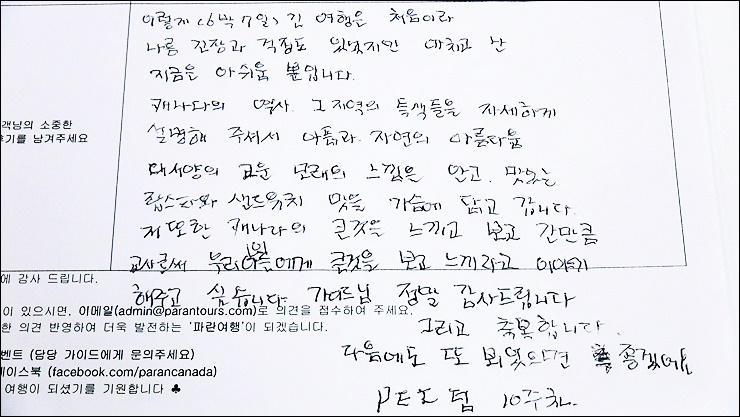 이렇게 (6박 7일) 긴 여행은 처음이라
나름 긴장과 걱정도 있었지만 마치고 난
지금은 아쉬움 뿐입니다.
캐나다의 역사. 그 지역의 특색들을 자세하게
객님의 소중한
기를 남겨주세요
설명해 주셔서 아픔과 자연의 아름다움
대서양의 고운 모래의 느낌을 안고. 맛있는
랍스타와 샌드위치 맛을 가슴에 담고 갑니다.
저 또한 캐나다의 큰것을 느끼고 보고 간만큼
교사로써 우리 에게 큰것을 보고 느끼라고 이야기
에 감사 드립니다.
해주고 싶습니다. 가이드님 정말 감사드립니다
이 있으시면, 이메일(admin@parantours.com)로 의견을 접수하여 주세요.
그리고 축복합니다.
한 의견 반영하여 더욱 발전하는 '파란여행'이 되겠습니다.
다음에도 또 뵈었으면 좋겠네요
벤트 (담당 가이드에게 문의주세요)
이스북 (facebook.com/parancanada)
여행이 되셨기를 기원합니다 ♣
PEI 팀 10주차.